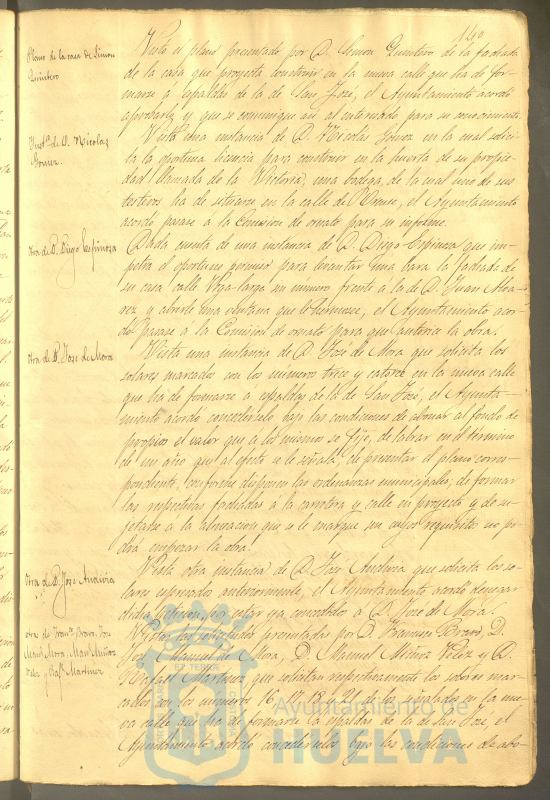 140
Plano de la casa de Simon
Quintero
Visto el plano presentado por D. Simon Quintero de la fachada
de la casa que proyecta construir en la nueva calle que ha de for-
marse a espaldas de la de San José, el Ayuntamiento acordó
aprobarle y que se comunique así al interesado para su conocimiento.
Inst.ª de D. Nicolas
Gomez.
Vista una instancia de D. Nicolas Gomez en la cual solici-
ta la oportuna licencia para construir en la puerta de su propie-
dad llamada de la Victoria, una bodega, de la cual uno de sus
testeros ha de situarse en la calle de, el Ayuntamiento
acordó pasase a la Comision de ornato para su informe.
Otra de D. Diego Espinosa
Dada cuenta de una instancia de D. Diego Espinosa que im-
petra el oportuno permiso para levantar una bara la fachada de
su casa calle Vega-larga sin numero frente a la de D. Juan Alva-
rez y abrirle una ventana que le hermosee, el Ayuntamiento acor-
dó pasase a la Comision de ornato para que autorice la obra.
Otra de D. José de Mora
Vista una instancia de D. José de Mora que solicita los
solares marcados con los numeros trece y catorce en la nueva calle
que ha de formarse a espaldas de la de San José, el Ayunta-
miento acordó concedérselos bajo las condiciones de abonar al fondo de
propios el valor que a los mismos se fije, de labrar en el término
de un año que al efecto se le señala, de presentar el plano corres-
pondiente, conforme disponen las ordenanzas municipales, de formar
las respectivas fachadas á la carretera y calle en proyecto y de su-
jetarse a la alineacion que se le marque sin cuyo requisito no po-
drá empezar la obra.
Otra de D. Jose Audivia
Vista otra instancia de D. José Audivia que solicita los so-
lares espresados anteriormente, el Ayuntamiento acordó denegar
dicha peticion, por estar ya concedidos a D. José de Mora.
Otra de Fran.co Bravo, José
Man.l Mora, Man.l Muñoz
Velez y Raf.l Martinez
Vistas las solicitudes presentadas por D. Francisco Bravo, D.
José Manuel de Mora, D. Manuel Muñoz Velez y D.
Rafael Martinez, que solicitan respectivamente los solares mar-
cados con los numeros 16, 17, 18 y 21 de los señalados en la nue-
va calle que ha de formarse a espaldas de la de San José, el
Ayuntamiento acordó concedérselos bajo las condiciones de abo-
Ayuntamiento de
HUELVA